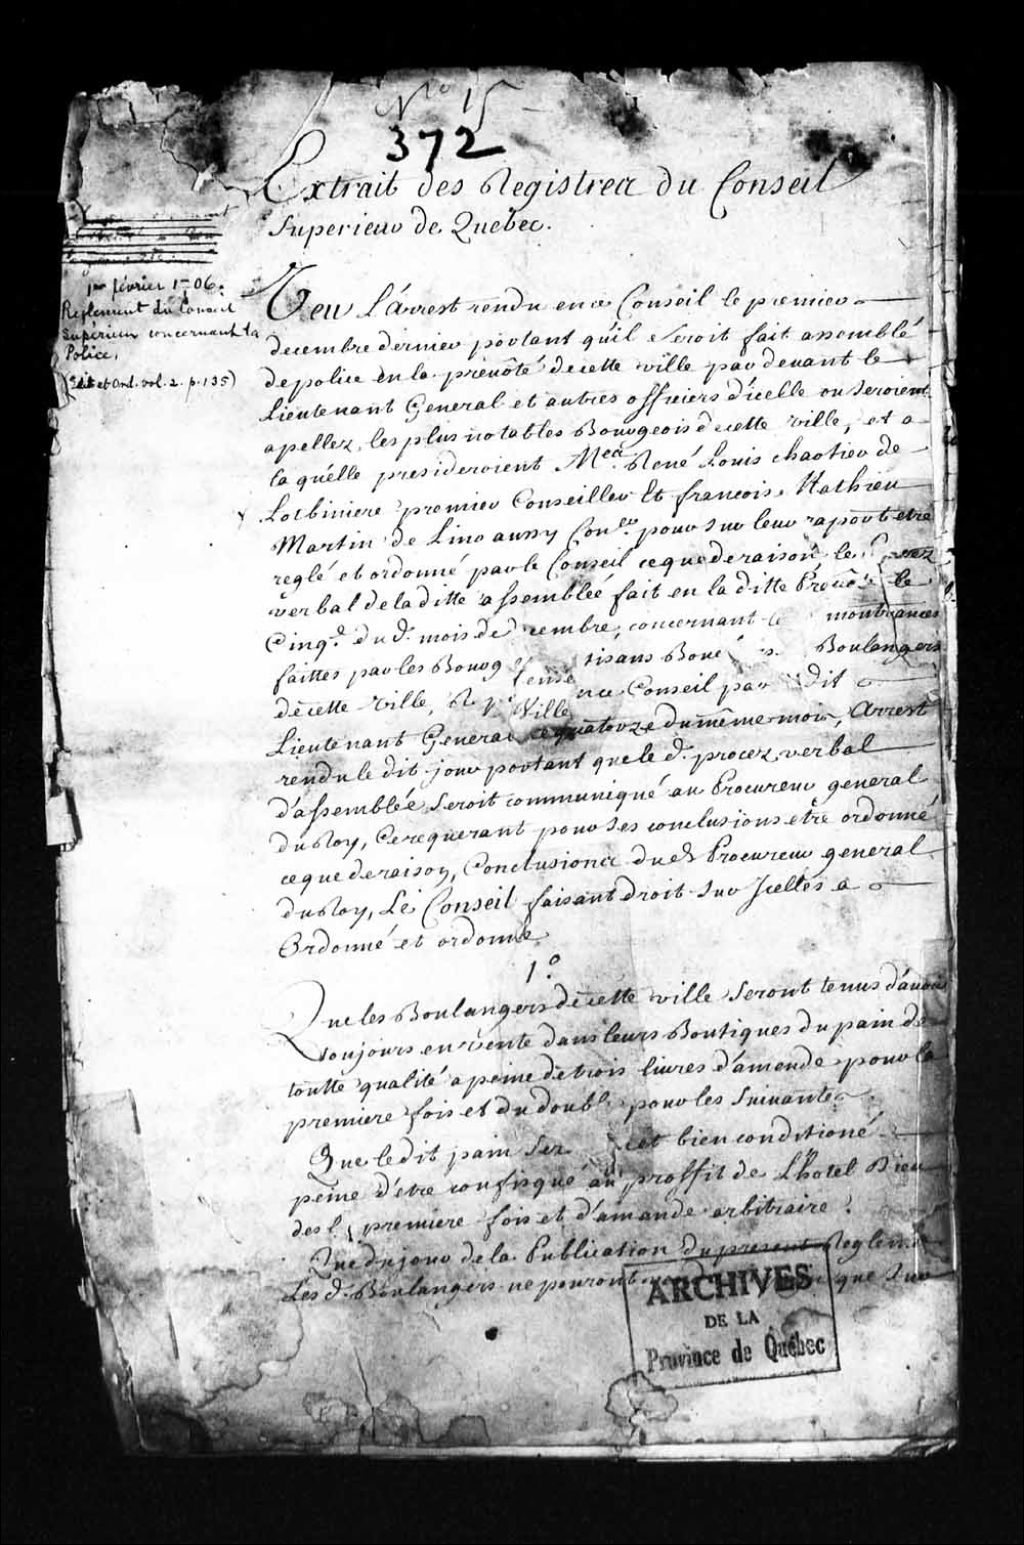 No 15
372
Extrait des Registres du Conseil
Superieur de Quebec.
1er février 1706.
Reglement du Conseil
Supérieur concernant la
Police.
(Edits et Ord. vol. 2. p. 135)
Veu L'Arrest rendu en ce Conseil le premier
decembre dernier portant qu'il seroit fait assemblé
de police en la prevôté de cette ville par devant le
Lieutenant General et autres officiers d'icelle ou seroient
apellez les plus notables Bourgeois de cette ville, et a
laquélle presideroient Mes. René Louis chartier de
Lotbiniere premier Conseiller Et francois Mathieu
Martin de Lino aussy Coner. pour sur leur raport etre
reglé et ordonné par le Conseil ce que de raison, le
verbal de la ditte assemblée fait en la ditte Prevôté le
Cinq.e du d. mois de decembre, concernant
faittes par les Bourg tisans Boulangers
de cette ville, ce Conseil par dit
Lieutenant General le quatorze du même mois, Arrest
rendu le dit jour portant que le d. procez verbal
d'assemblée seroit communiqué au Procureur general
du Roy, Ce requerant pour ses conclusions etre ordonné
ce que de raison, Conclusions du d. Procureur general
du Roy, Le Conseil faisant droit sur Jcelles a
Ordonné et ordonne
1.o
Que les Boulangers de cette ville seront tenus d'avoir
toujours en vente dans leurs Boutiques du pain de
toutte qualité a peine de trois livres d'amende pour la
premiere fois et du doubl pour les suivantes.
Que le dit pain ser et bien conditioné
peine d'etre confisqué au proffit de L'hotel Dieu
des l premiere fois et d'amande arbitraire.
Que du jour de la Publication du present Reglem
Les d. Boulangers ne pouront que sur
ARCHIVES
DE LA
Province de Québec